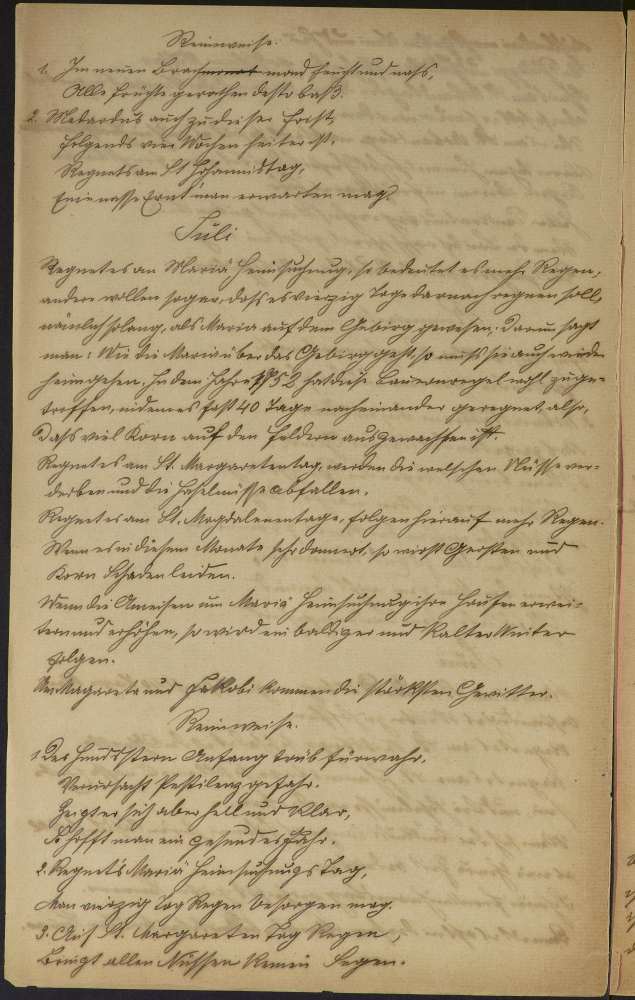 Reimweise.
1. Im neuen Brachmonat mond feucht und naß,
Alle Früchte gerathen desto baß.
2. Medardus auch zu dieser Frist,
folgends vier Wochen heiter ist.
Regnets am St Johannistag,
Eine nasse Ernt man erwarten mag.
Juli
Regnet es an Mariä Heimsuchung, so bedeutet es mehr Regen,
andere wollen sogar, daß es vierzig Tage darnach regnen soll,
nämlich solang, als Maria auf dem Gebirg gewesen. Darum sagt
man: Wie die Maria über das Gebirg geht, so muß sie auch wieder
heimgehen. In dem Jahre 1752 hat diese Bauernregel wohl zuge-
troffen, indem es fast 40 Tage nacheinander geregnet, also,
daß viel Korn auf den Feldern ausgewachsen ist.
Regnet es am St. Margaretentag, werden die welschen Nüsse ver-
derben und die Haselnüsse abfallen.
Regnet es am St. Magdalenentage, folgen hierauf mehr Regen.
Wenn es in diesem Monate sehr donnert, so wirst Gersten und
Korn Schaden leiden.
Wenn die Ameisen um Mariä Heimsuchung ihre Haufen erwei-
tern und erhöhen, so wird ein baldiger und kalter Winter
folgen.
Um Magareta und Jakobi kommen die stärksten Gewitter.
Reimweise.
1. Der Hundsstern Anfang trüb fürwahr,
Verursacht Pestilenzgefahr.
Zeigt er sich aber hell und klar,
So hofft man ein gesundes Jahr.
2. Regnet's Mariä Heimsuchungs Tag,
Man vierzig Tag Regen besorgen mag.
3. Auf St. Margareten Tag Regen,
Bringt allen Nüssen keinen Segen.